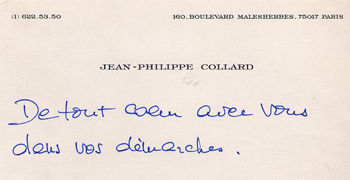 (1) 622.53.50
160, BOULEVARD MALESHERBES, 75017 PARIS
JEAN-PHILIPPE COLLARD
De tout cœur avec vous
dans vos démarches.